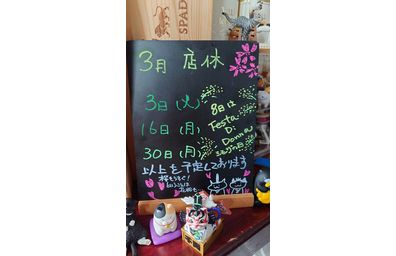 SPAD
3月 店休
3日(火)
16日(月)
30日(月)
8日は
Festa
Di
Donna
以上を予定しております